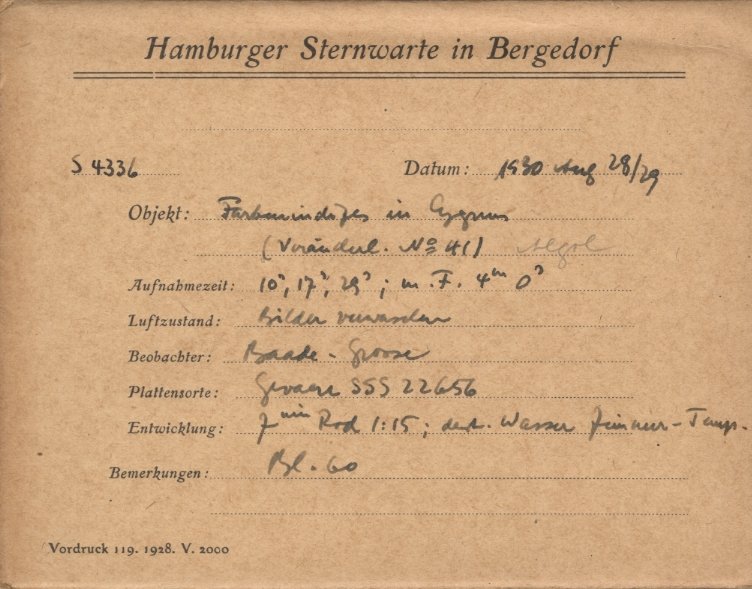 Hamburger Sternwarte in Bergedorf
S 4336 Datum: 1930 Aug 28/29
Objekt: Farbenindizes in Cygnus
(Veränderl. No 41) Algol
Aufnahmezeit: 10ˢ, 17ˢ, 29ˢ; m. F. 4ᵐ 0ˢ
Luftzustand: Bilder verwaschen
Beobachter: Baade - Groose
Plattensorte: Gevaert SSS 22656
Entwicklung: 7ᵐⁱⁿ Rod 1:15; dest. Wasser Zimmer-Temp.
Bemerkungen: Bl. 60
Vordruck 119. 1928. V. 2000